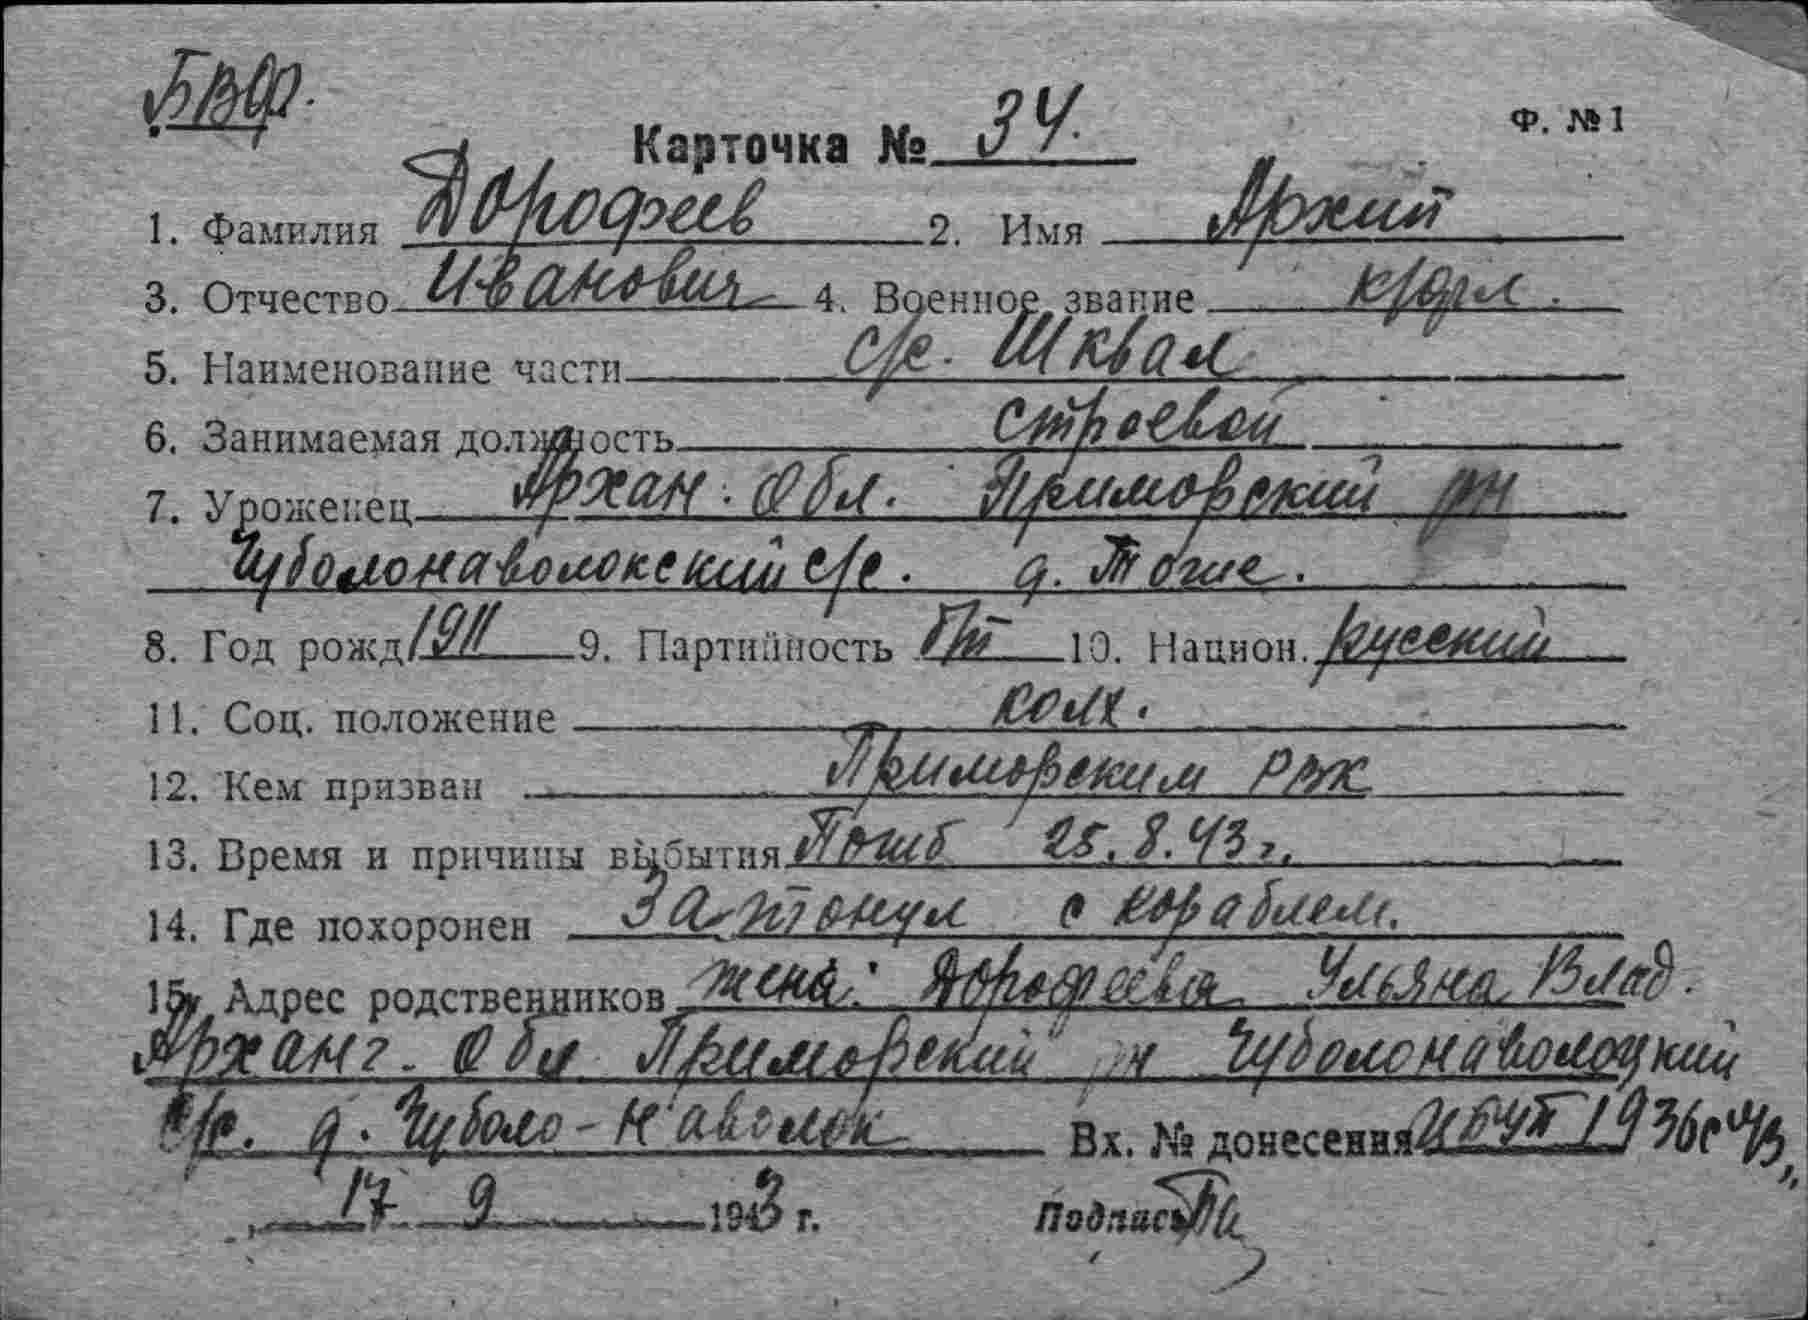 БВФ.
Ф. № 1
Карточка № 34.
1. Фамилия Дорофеев 2. Имя Архип
3. Отчество Иванович 4. Военное звание к/фл.
5. Наименование части с/с. Шквал
6. Занимаемая должность строевой
7. Уроженец Архан. Обл. Приморский рн
Чуболонаволокский с/с. д. Тогие.
8. Год рожд 1911 9. Партийность б/п 10. Национ. русский
11. Соц. положение колх.
12. Кем призван Приморским РВК
13. Время и причины выбытия Погиб 25.8.43 г.
14. Где похоронен Затонул с кораблем.
15. Адрес родственников жена: Дорофеева Ульяна Влад.
Арханг. Обл Приморский рн Чуболонаволоцкий
с/с. д. Чуболо-Наволок Вх. № донесения 1936с
17 9 1943 г. Подпись